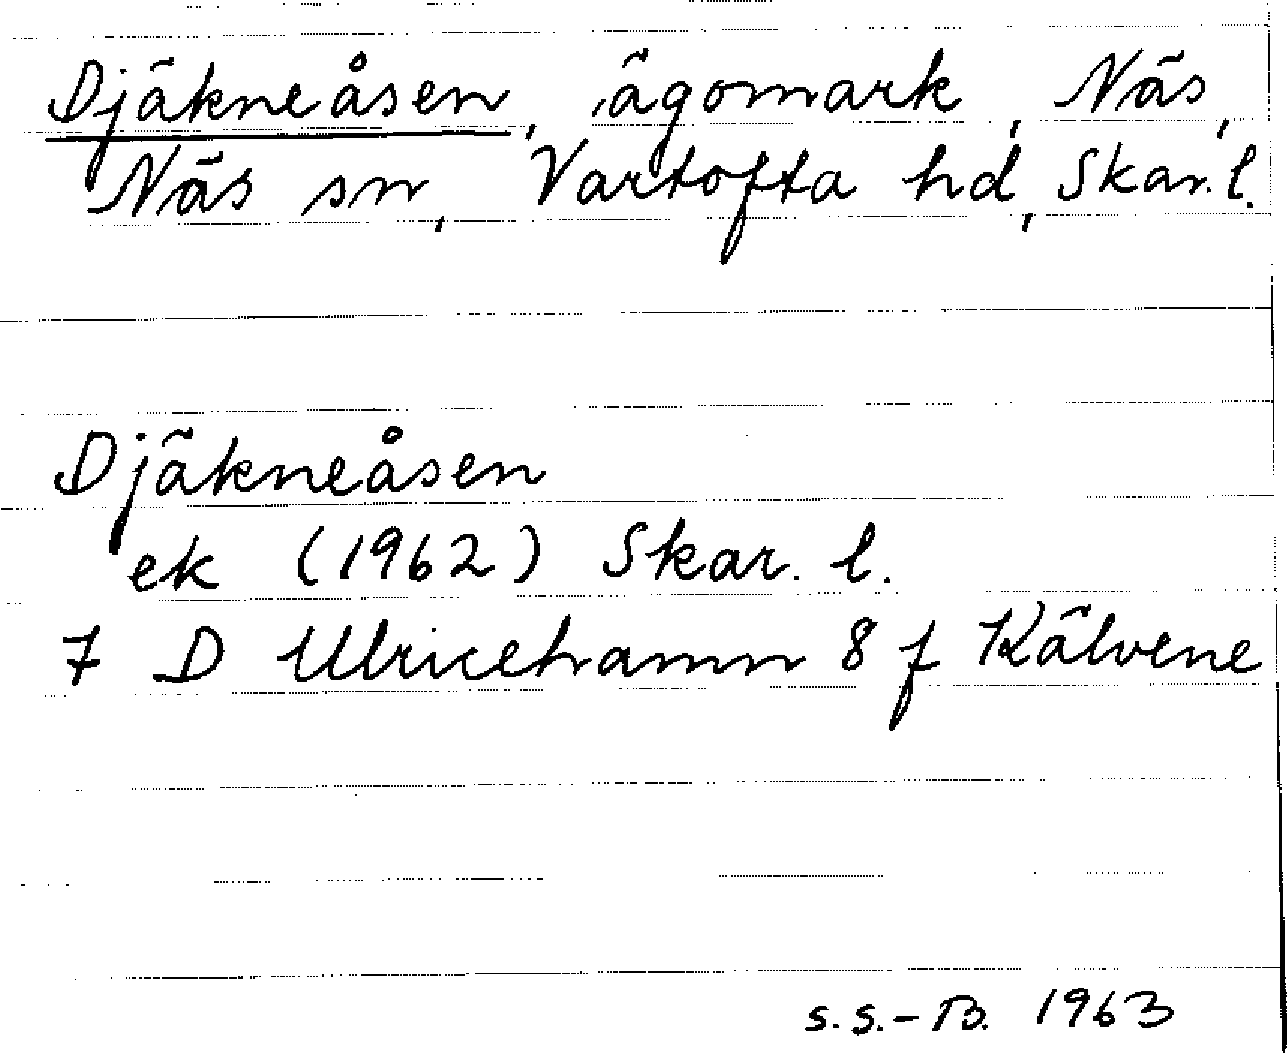 Djäkneåsen, ägomark, Näs,
Näs sn, Vartofta hd, Skar. l.
Djäkneåsen
ek (1962) Skar. l.
7 D Ulricehamn 8 f Kälvene
S.S.-B. 1963